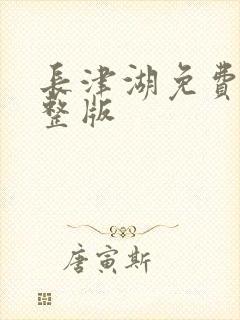 長津湖免費
整版
唐寅斯